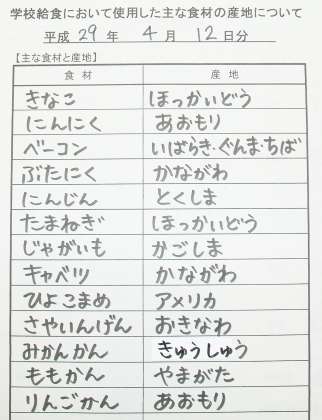 学校給食において使用した主な食材の産地について
平成 29 年 4 月 12 日分
【主な食材と産地】
食材 産地
きなこ ほっかいどう
にんにく あおもり
ベーコン いばらき・ぐんま・ちば
ぶたにく かながわ
にんじん とくしま
たまねぎ ほっかいどう
じゃがいも かごしま
キャベツ かながわ
ひよこまめ アメリカ
さやいんげん おきなわ
みかんかん きゅうしゅう
ももかん やまがた
りんごかん あおもり